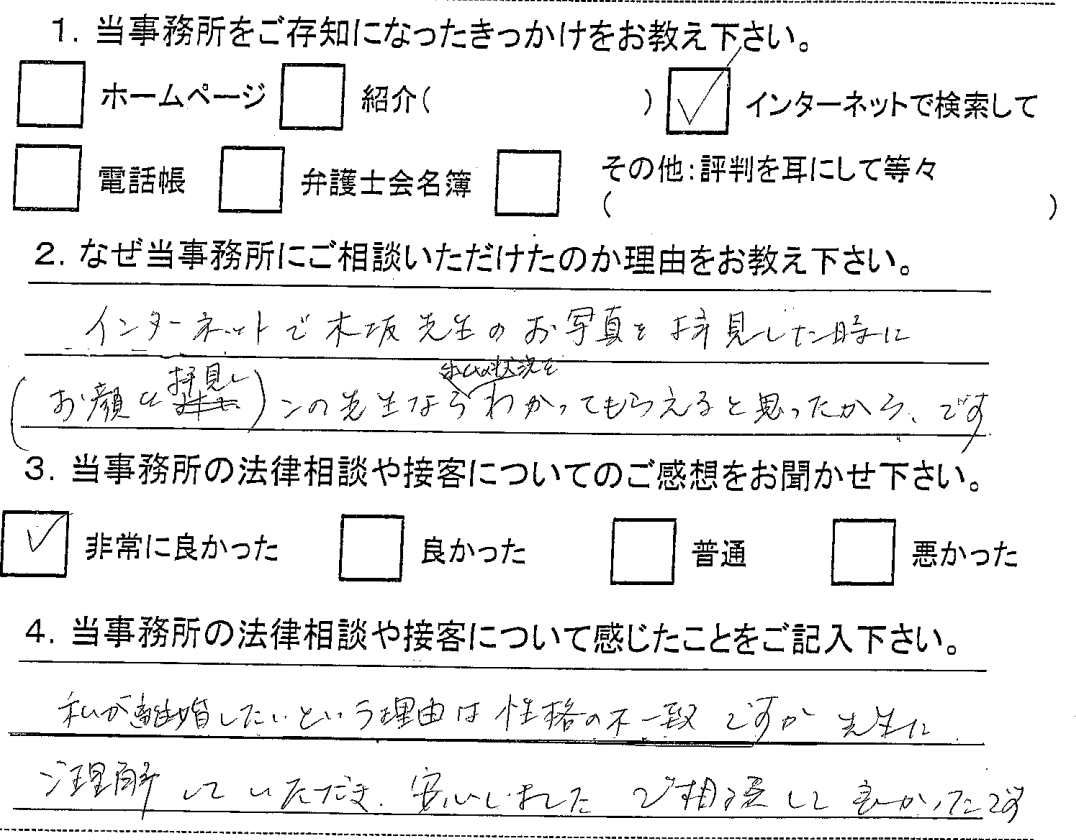 1. 当事務所をご存知になったきっかけをお教え下さい。
ホームページ 紹介( ) インターネットで検索して
電話帳 弁護士会名簿 その他:評判を耳にして等々
( )
2. なぜ当事務所にご相談いただけたのか理由をお教え下さい。
インターネットで木坂先生のお写真を拝見した時に
(お顔を拝見し)この先生なら私の状況をわかってもらえると思ったから、です
3. 当事務所の法律相談や接客についてのご感想をお聞かせ下さい。
非常に良かった 良かった 普通 悪かった
4. 当事務所の法律相談や接客について感じたことをご記入下さい。
私が離婚したいという理由は性格の不一致ですが先生に
ご理解していただき、安心しました ご相談して良かったです